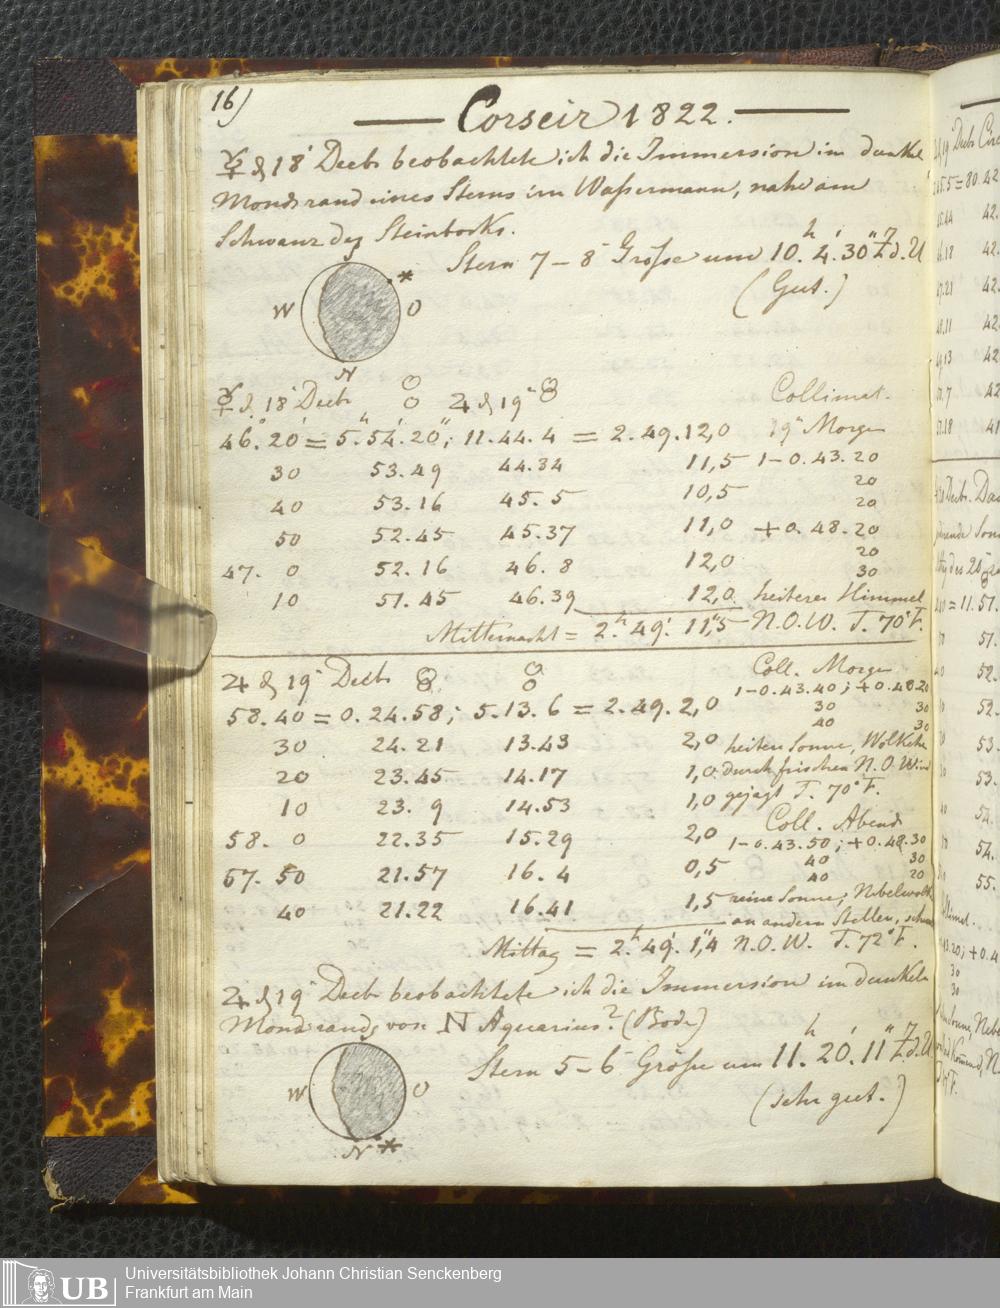 16)
Corseir 1822.
☿ d 18ⁿ Decb beobachtete ich die Immersion im dunkeln
Mondsrand eines Sterns im Wassermann, nahe am
Schwanz des Steinbocks.
Stern 7–8 Größe um 10.ʰ 4.′30″,7 Z.d.U
(Gut.)
W O
N
☿ d. 18 Decb ♃ d 19ⁿ Collimat.
46.°20′ = 5.″54.′20″; 11.44.4 = 2.49.12,0 19ⁿ Morgen
30 53.49 44.34 11,5 1–0.43.20
20
40 53.16 45.5 10,5 20
50 52.45 45.37 11,0 +0.48.20
20
47. 0 52.16 46.8 12,0 30
10 51.45 46.39 12,0 heiterer Himmel
Mitternacht = 2.ʰ49.′11,″5 N.O.W. T. 70°F.
♃ d 19ⁿ Decb Coll. Morgen
1–0.43.40; +0.48.20
58.40 = 0.24.58; 5.13.6 = 2.49.2,0 30 30
40 30
30 24.21 13.43 2,0 heitere Sonne, Wölkchen
20 23.45 14.17 1,0 durch frischen N.O. Wind
10 23. 9 14.53 1,0 gejagt T. 70°F.
Coll. Abend
58. 0 22.35 15.29 2,0 1–0.43.50; +0.48.30
40 30
57. 50 21.57 16. 4 0,5 40 20
40 21.22 16.41 1,5 reine Sonne; Nebelwolk
an andern Stellen,
Mittag = 2.ʰ49.′1,″4 N.O.W. T. 72°F.
♃ d 19ⁿ Decb beobachtete ich die Immersion im dunkeln
Mondsrands von N Aquarius? (Bode)
Stern 5–6 Größe um 11.ʰ 20.′11″,7 Z.d.U
(sehr gut.)
W O
N
UB
Universitätsbibliothek Johann Christian Senckenberg
Frankfurt am Main